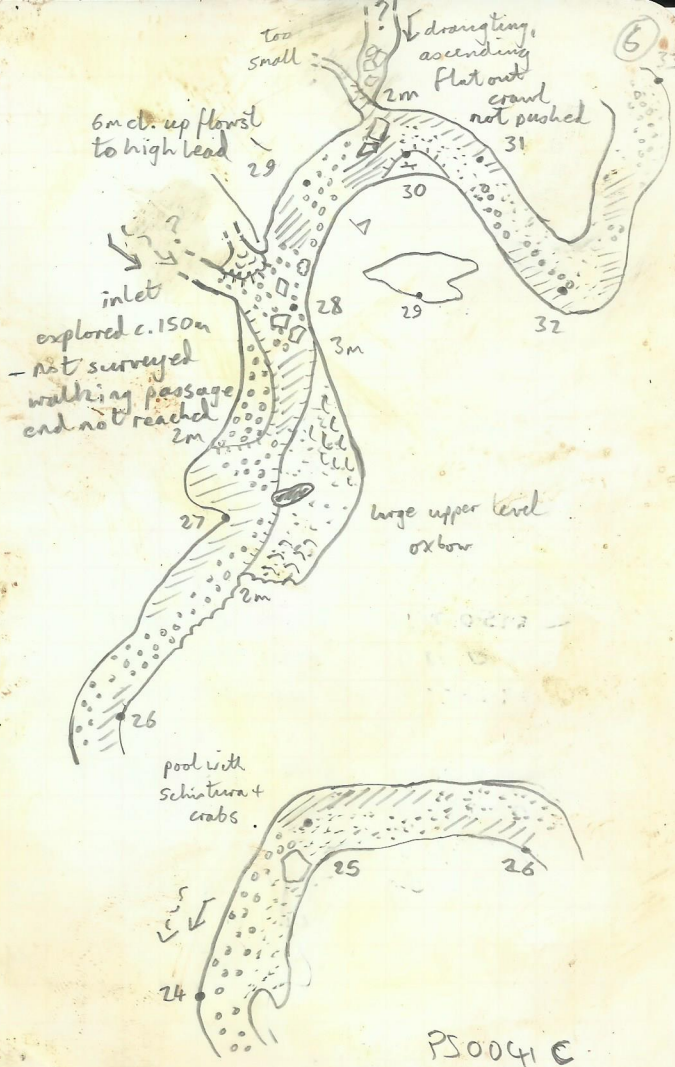 6
33
too
small
?
draugting,
ascending
flat out
crawl
not pushed
2m
6m cl. up flowst
to high lead
31
29
30
?
inlet
explored c.150m
- not surveyed
walking passage
end not reached
29
28
32
3m
2m
27
large upper level
oxbow
2m
26
pool with
schistura +
crabs
25
26
24
PS0041 C